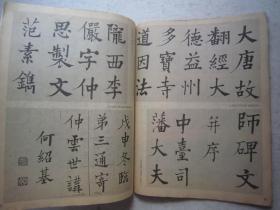 大唐故
翻經大
德益州
多寶寺
道因法
師碑文
并序
中臺司
藩大夫
隴西李
儼字仲
思製文
范素鐫
戊申冬臨
第三通寄
仲雲世講
何紹基